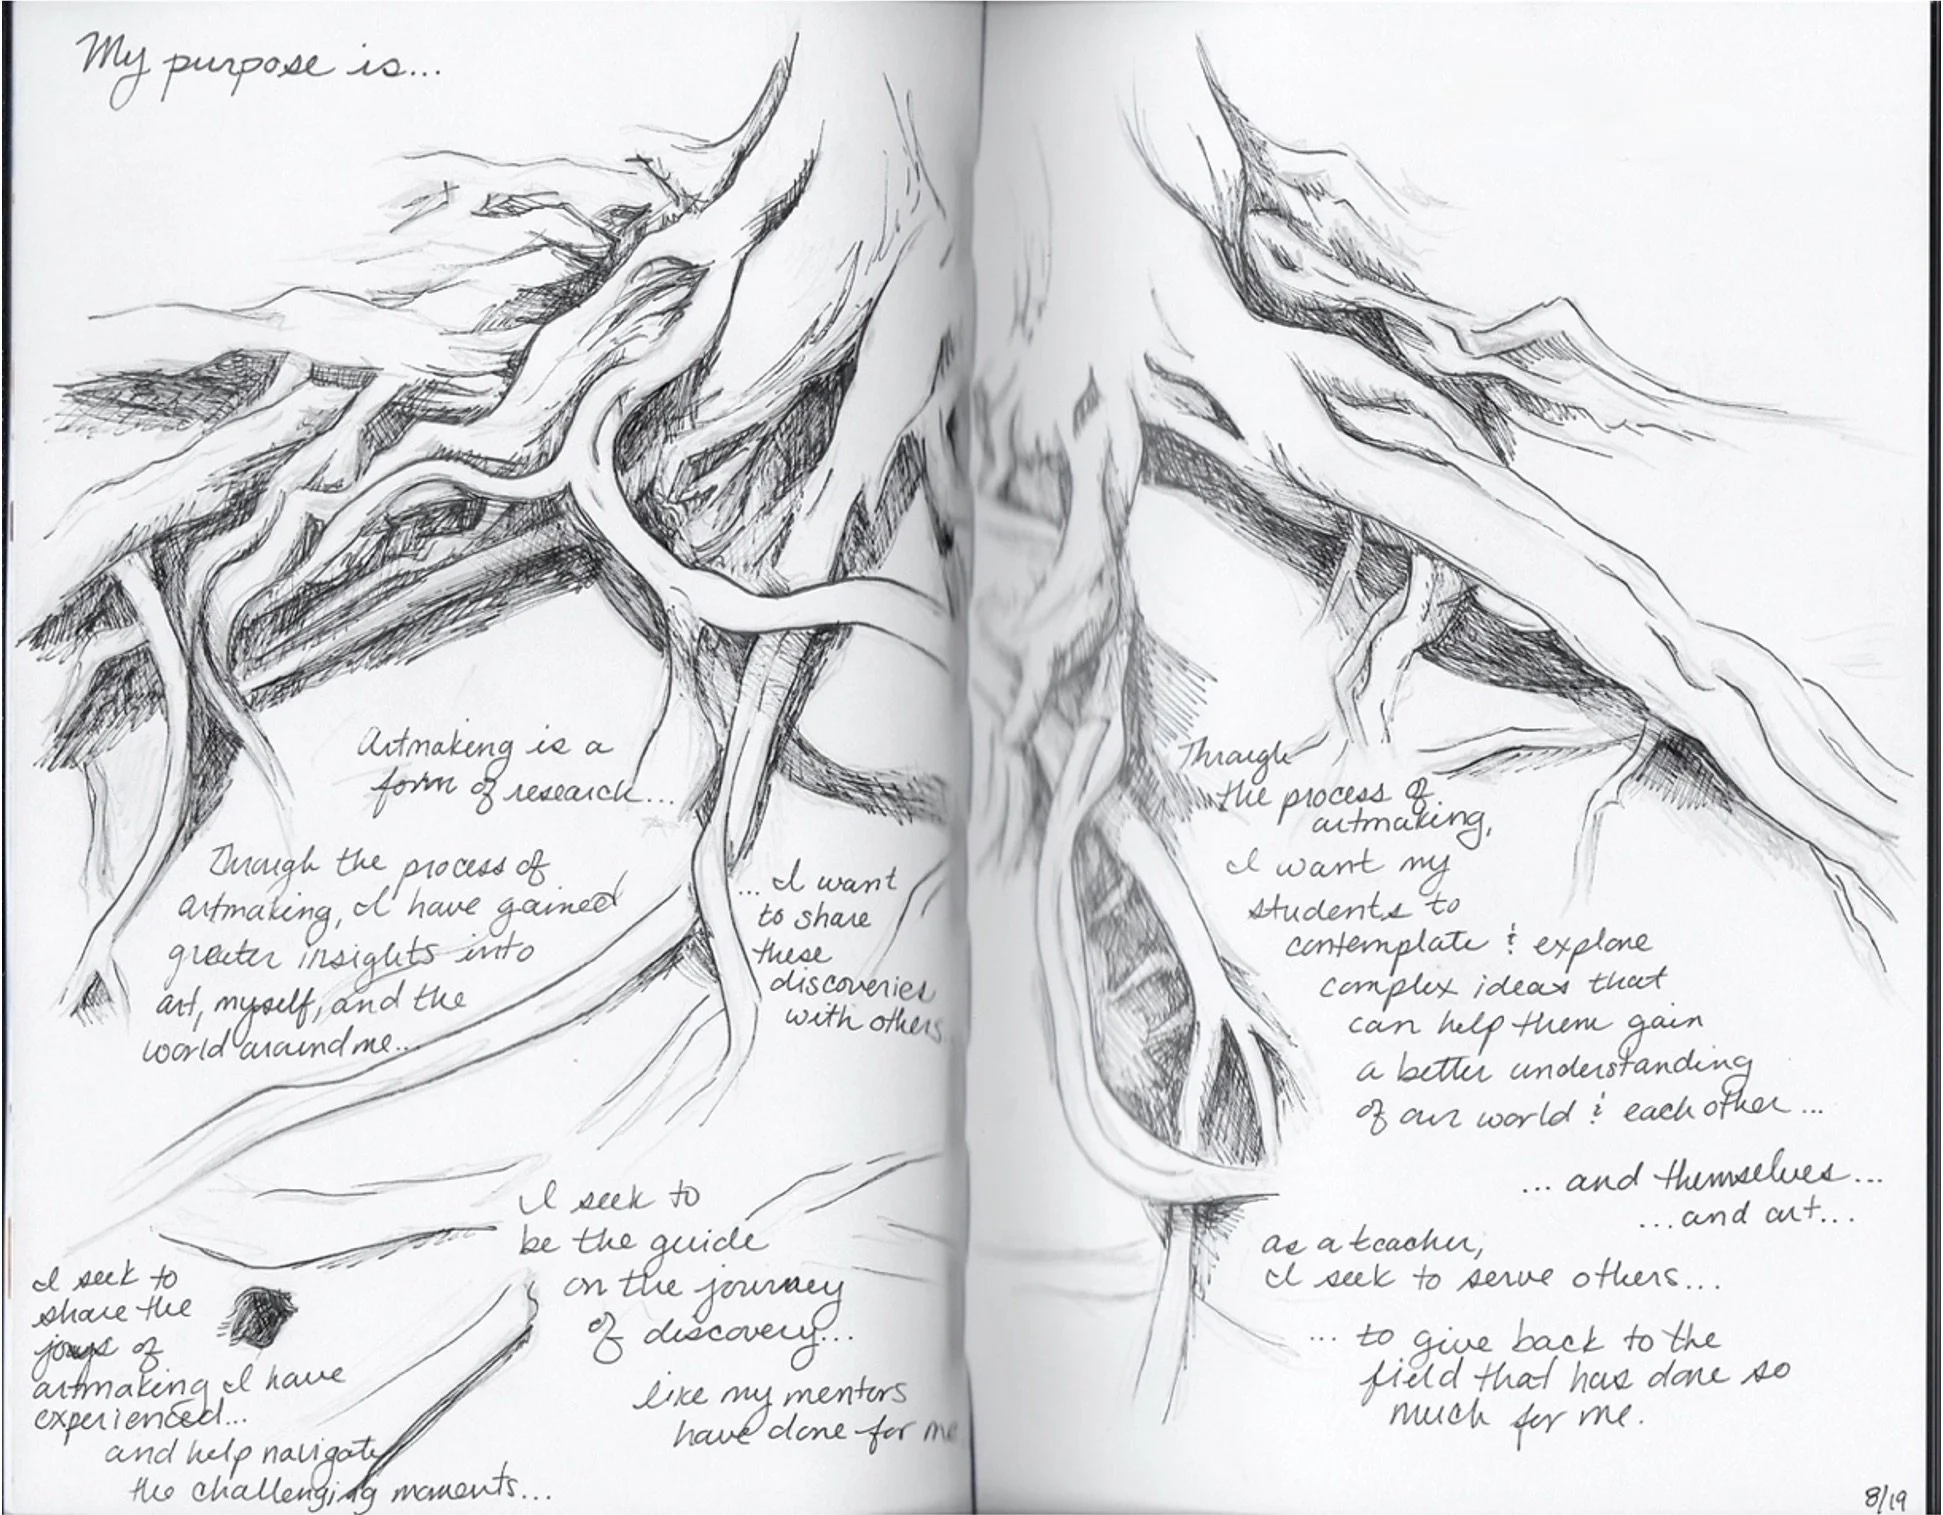 My purpose is...
Artmaking is a
form of research...
Through the process of
artmaking, I have gained
greater insights into
art, myself, and the
world around me...
... I want
to share
these
discoveries
with others
I seek to
share the
joys of
artmaking I have
experienced...
and help navigate
the challenging moments...
I seek to
be the guide
on the journey
of discovery...
like my mentors
have done for me
Through
the process of
artmaking,
I want my
students to
contemplate & explore
complex ideas that
can help them gain
a better understanding
of our world & each other...
... and themselves...
...and art...
as a teacher,
I seek to serve others...
... to give back to the
field that has done so
much for me.
8/19